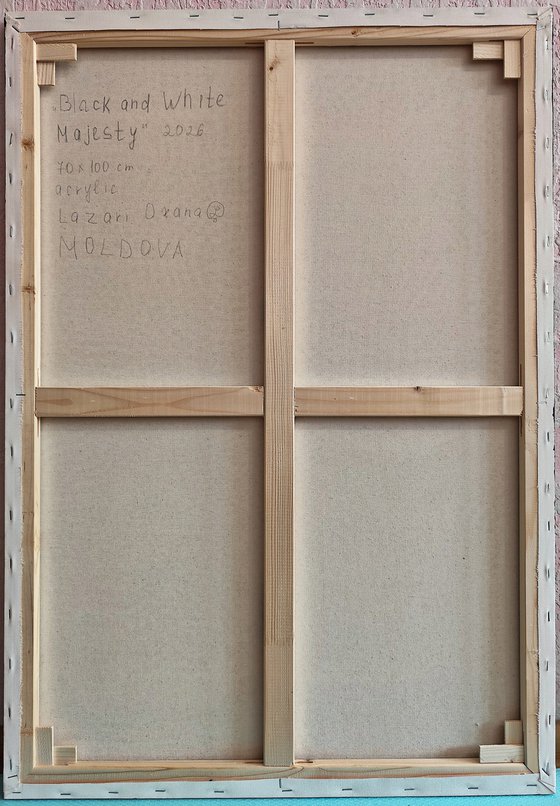 „Black and White
Majesty" 2026
70x100 cm
acrylic
Lazari Oxana
MOLDOVA